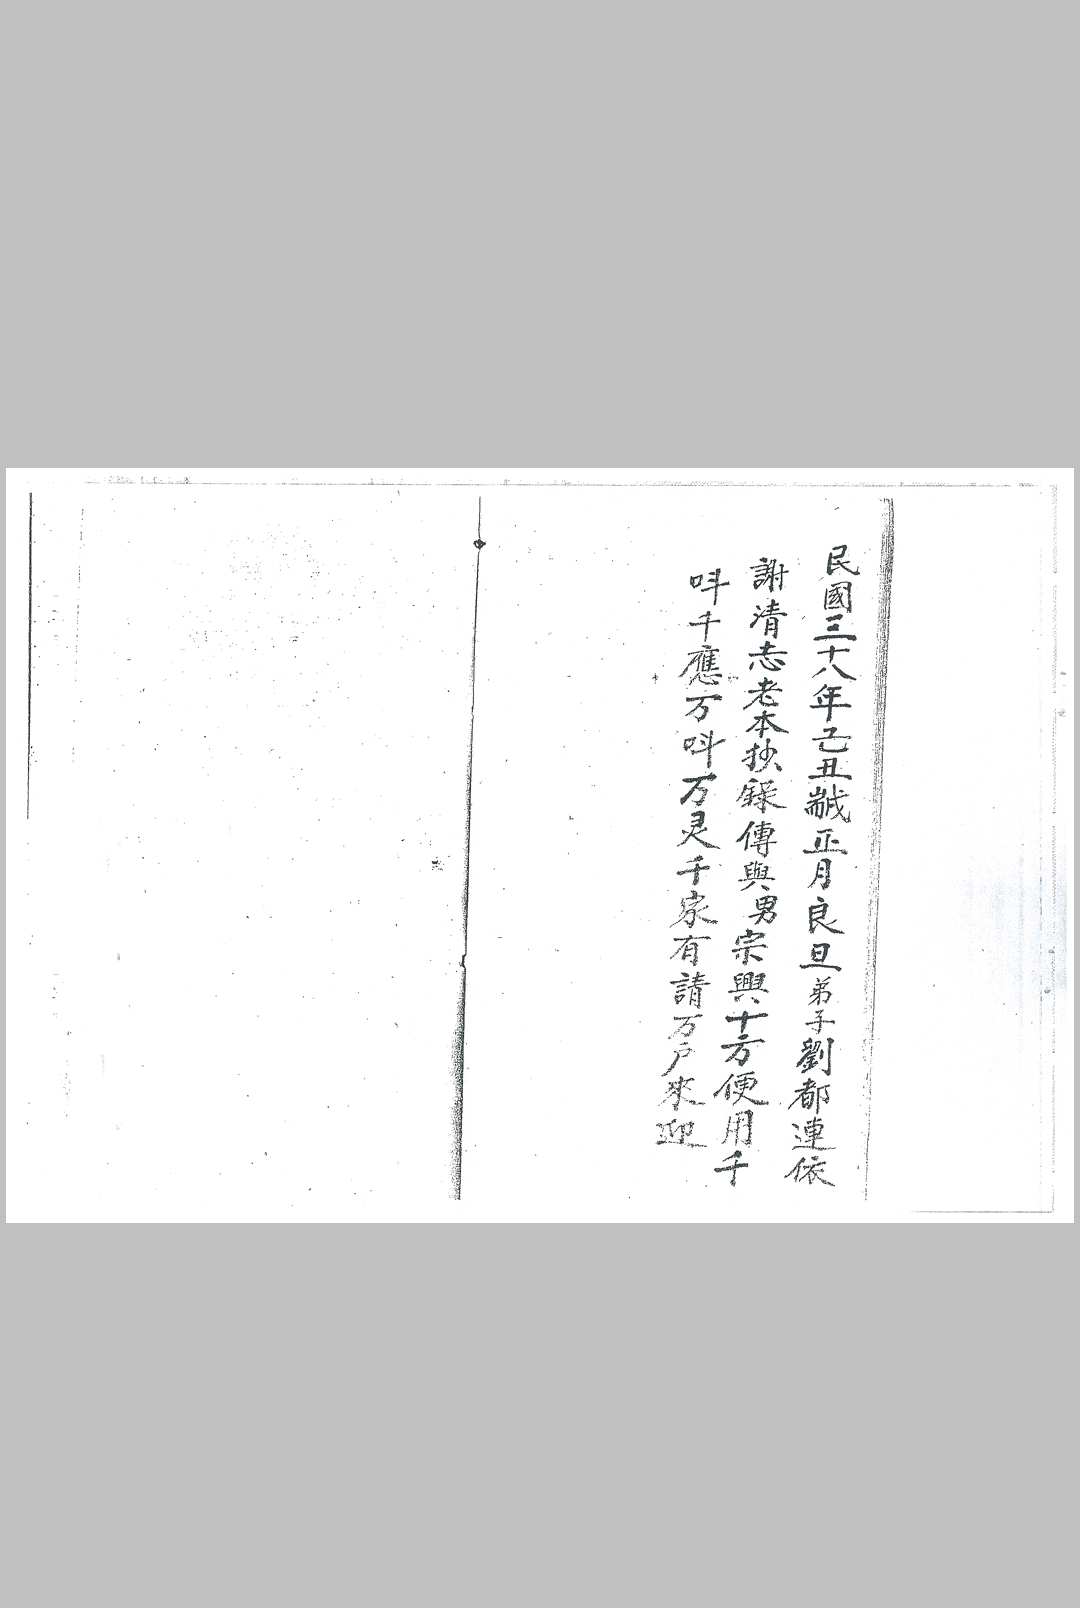 民國三十八年己丑歲正月良旦弟子劉都連依
謝清志老本抄錄傳與男宗興十方便用千
呌千應万呌万灵千家有請万戶來迎